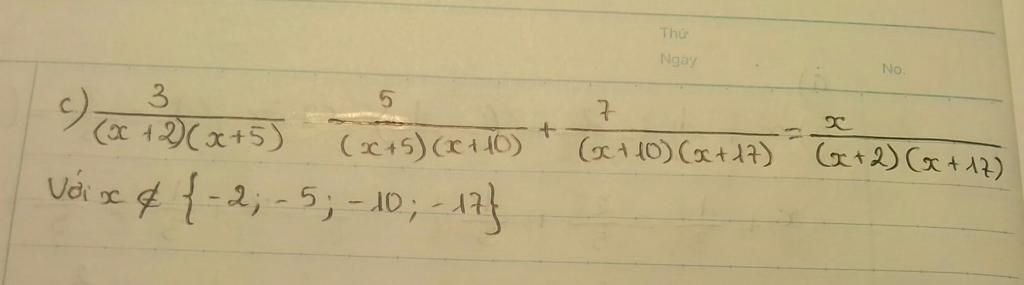 Thứ
Ngày
No.
c) 3/((x+2)(x+5)) 5/((x+5)(x+10)) + 7/((x+10)(x+17)) = x/((x+2)(x+17))
Với x ∉ {-2; -5; -10; -17}